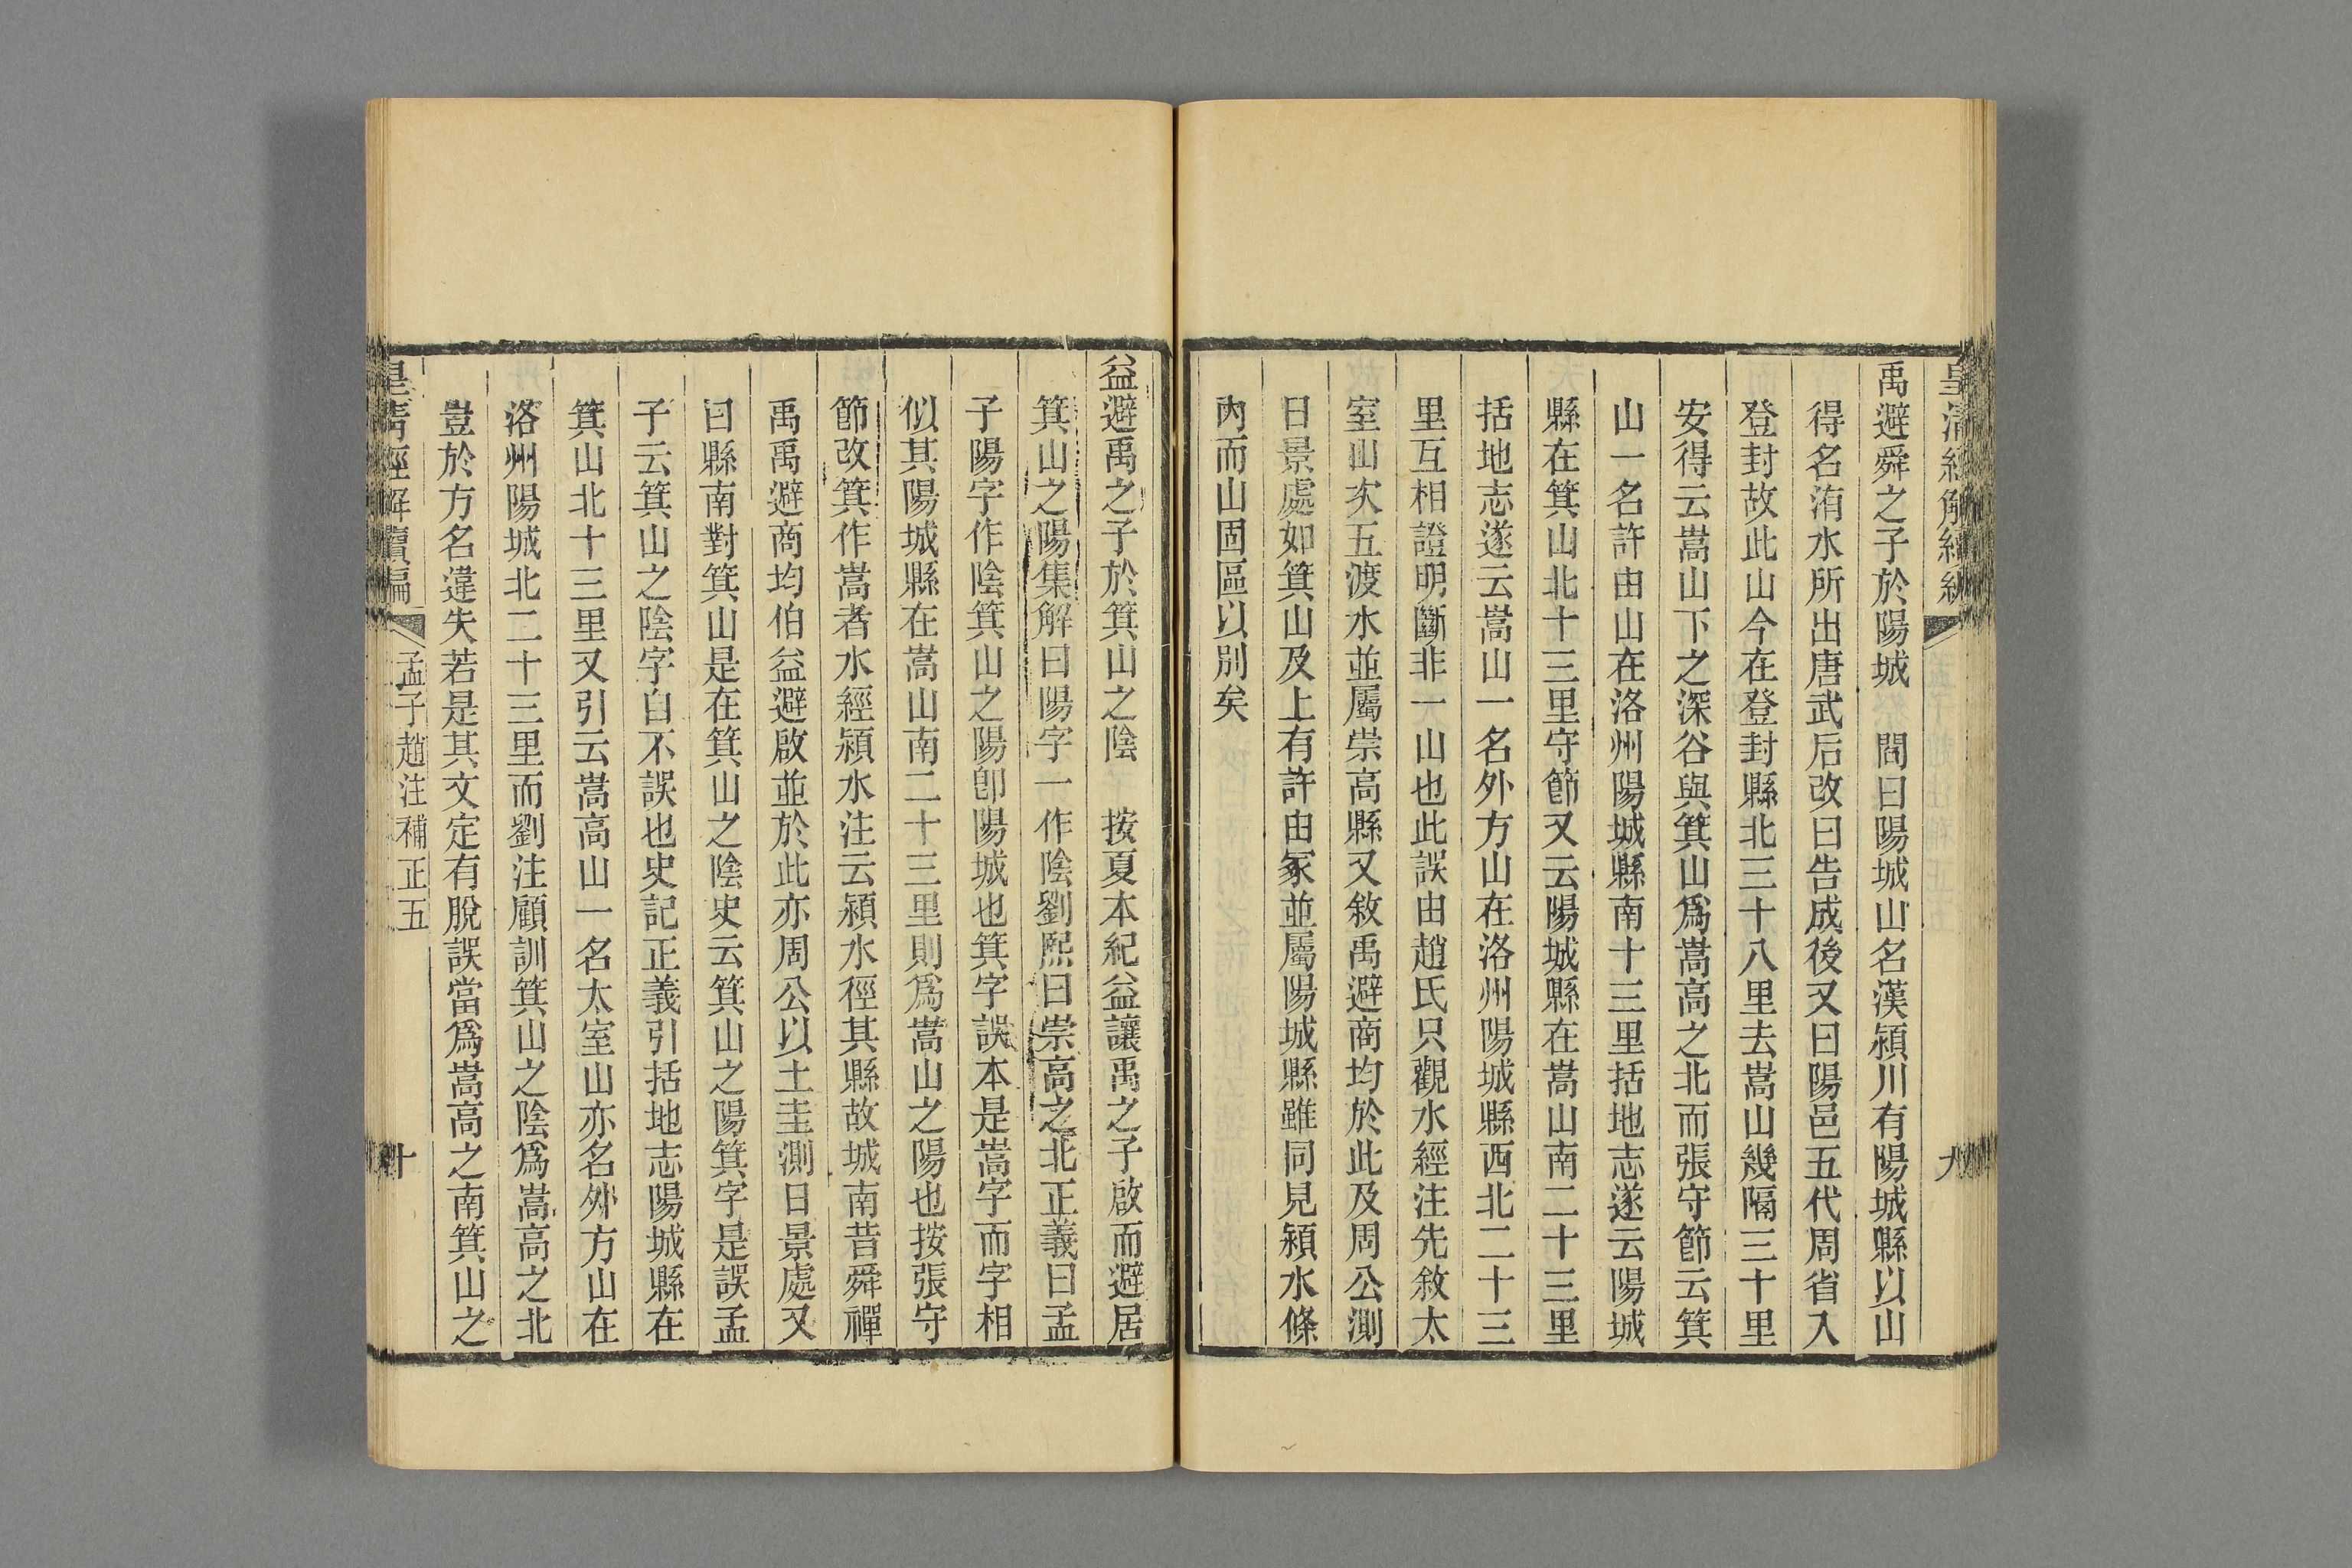 禹避舜之子於陽城　閻曰陽城山名漢潁川有陽城縣以山
得名洧水所出唐武后改曰告成後又曰陽邑五代周省入
登封故此山今在登封縣北三十八里去嵩山幾隔三十里
安得云嵩山下之深谷與箕山爲嵩高之北而張守節云箕
山一名許由山在洛州陽城縣南十三里括地志遂云陽城
縣在箕山北十三里守節又云陽城縣在嵩山南二十三里
括地志遂云嵩山一名外方山在洛州陽城縣西北二十三
里互相證明斷非一山也此誤由趙氏只觀水經注先敘太
室山次五渡水並屬崇高縣又敘禹避商均於此及周公測
日景處如箕山及上有許由冢並屬陽城縣雖同見潁水條
內而山固區以別矣
益避禹之子於箕山之陰　按夏本紀益讓禹之子啟而避居
箕山之陽集解曰陽字一作陰劉熙曰崇高之北正義曰孟
子陽字作陰箕山之陽卽陽城也箕字誤本是嵩字而字相
似其陽城縣在嵩山南二十三里則爲嵩山之陽也按張守
節改箕作嵩者水經潁水注云潁水徑其縣故城南昔舜禪
禹禹避商均伯益避啟並於此亦周公以土圭測日景處又
曰縣南對箕山是在箕山之陰史云箕山之陽箕字是誤孟
子云箕山之陰字自不誤也史記正義引括地志陽城縣在
箕山北十三里又引云嵩高山一名太室山亦名外方山在
洛州陽城北二十三里而劉注顧訓箕山之陰爲嵩高之北
豈於方名違失若是其文定有脫誤當爲嵩高之南箕山之
皇清經解續編　孟子趙注補正五　十